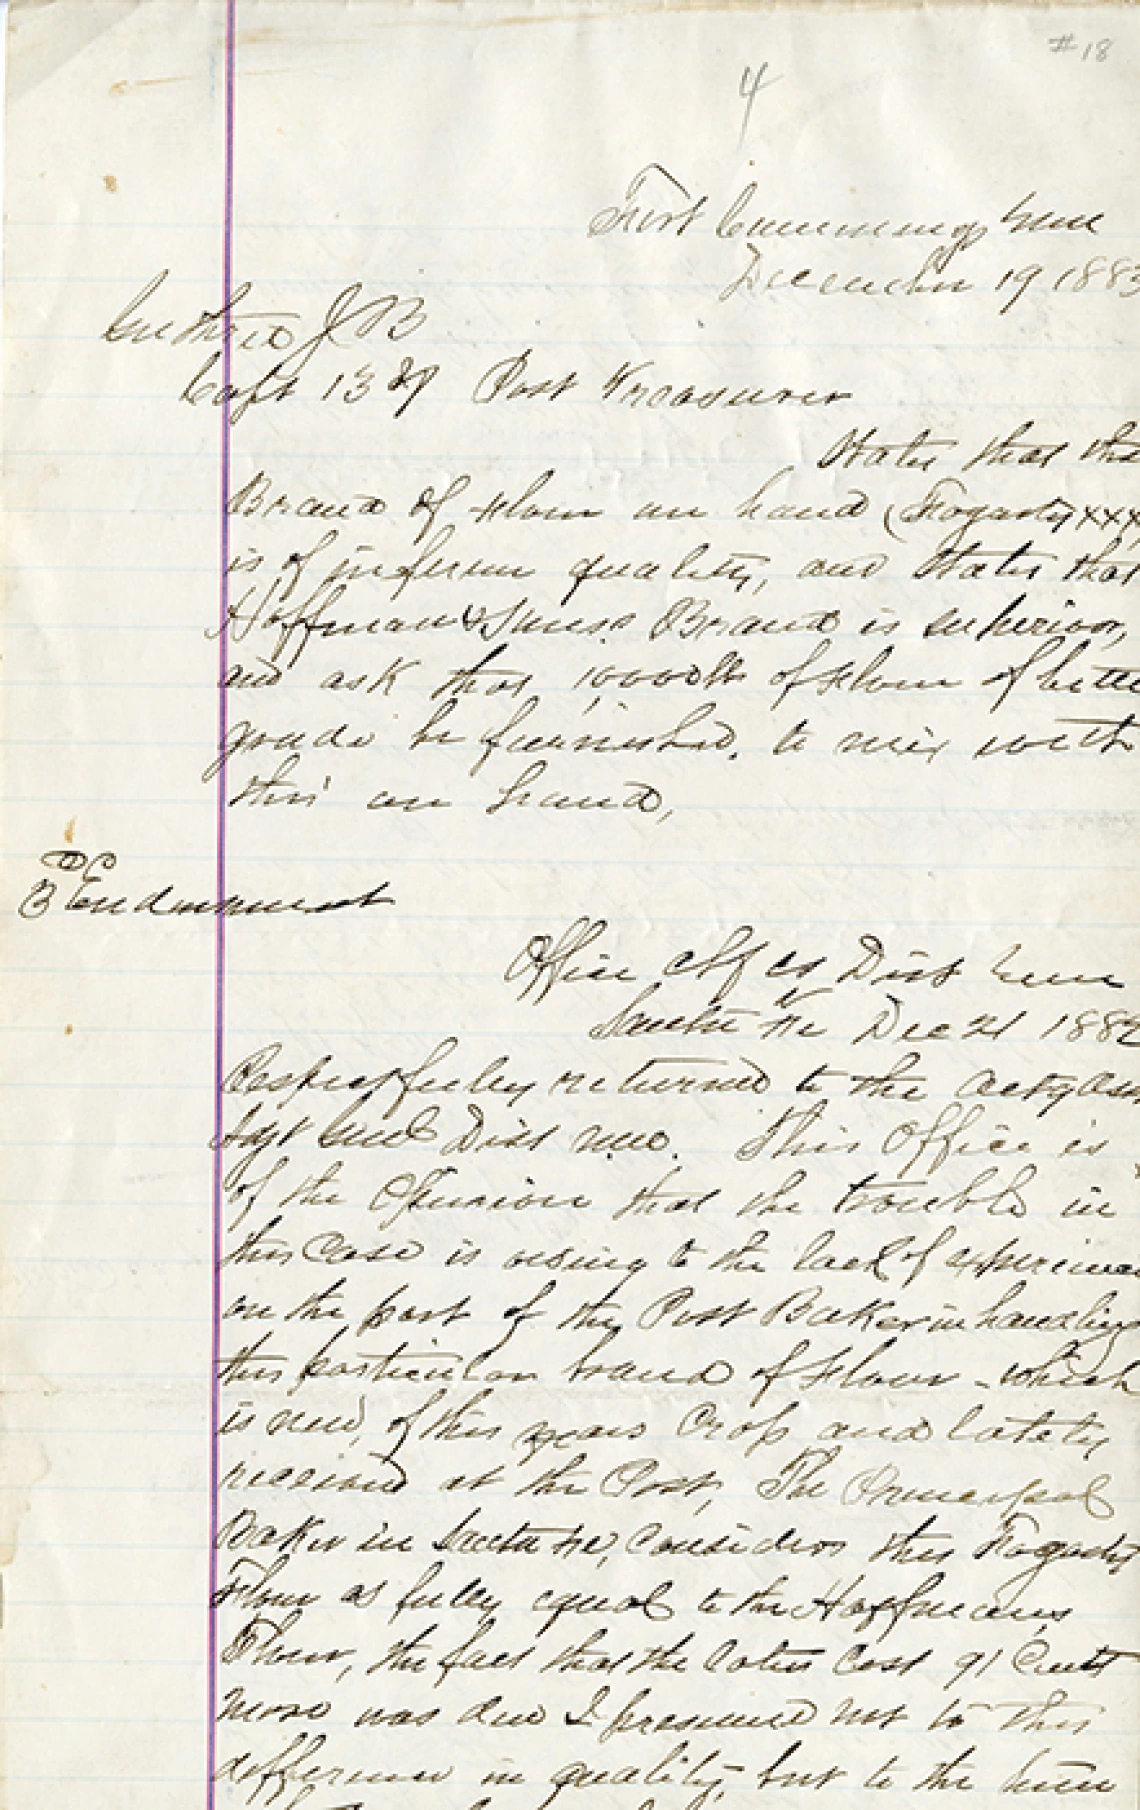 #18
4
Fort Cummings NM
December 19 1883
Guthrie J B
Capt 13 Post Treasurer
States that the
Brand of Flour on hand (Fogarty XXX
is of inferior quality, and States that
Hoffman & Brand is superior,
and ask that 1,000 lbs of Flour of bette
grade be furnished, to mix with
this on hand,
3d Endorsement
Office C of S Dist NM
Santa Fe Dec 21 188
Respectfully returned to the Actg Ass
Adjt Genl Dist NM. This Office is
of the Opinion that the trouble in
this Case is owing to the lack of experience
on the part of the Post Baker in handling
this particular brand of Flour - which
is new, of this years Crop and lately
received at the Post, The Principal
Baker in Santa Fe, Considers this Fogarty
Flour as fully equal to the Hoffmans
Flour, the fact that the latter Cost 91 Cents
more was due I presume not to this
difference in quality, but to the